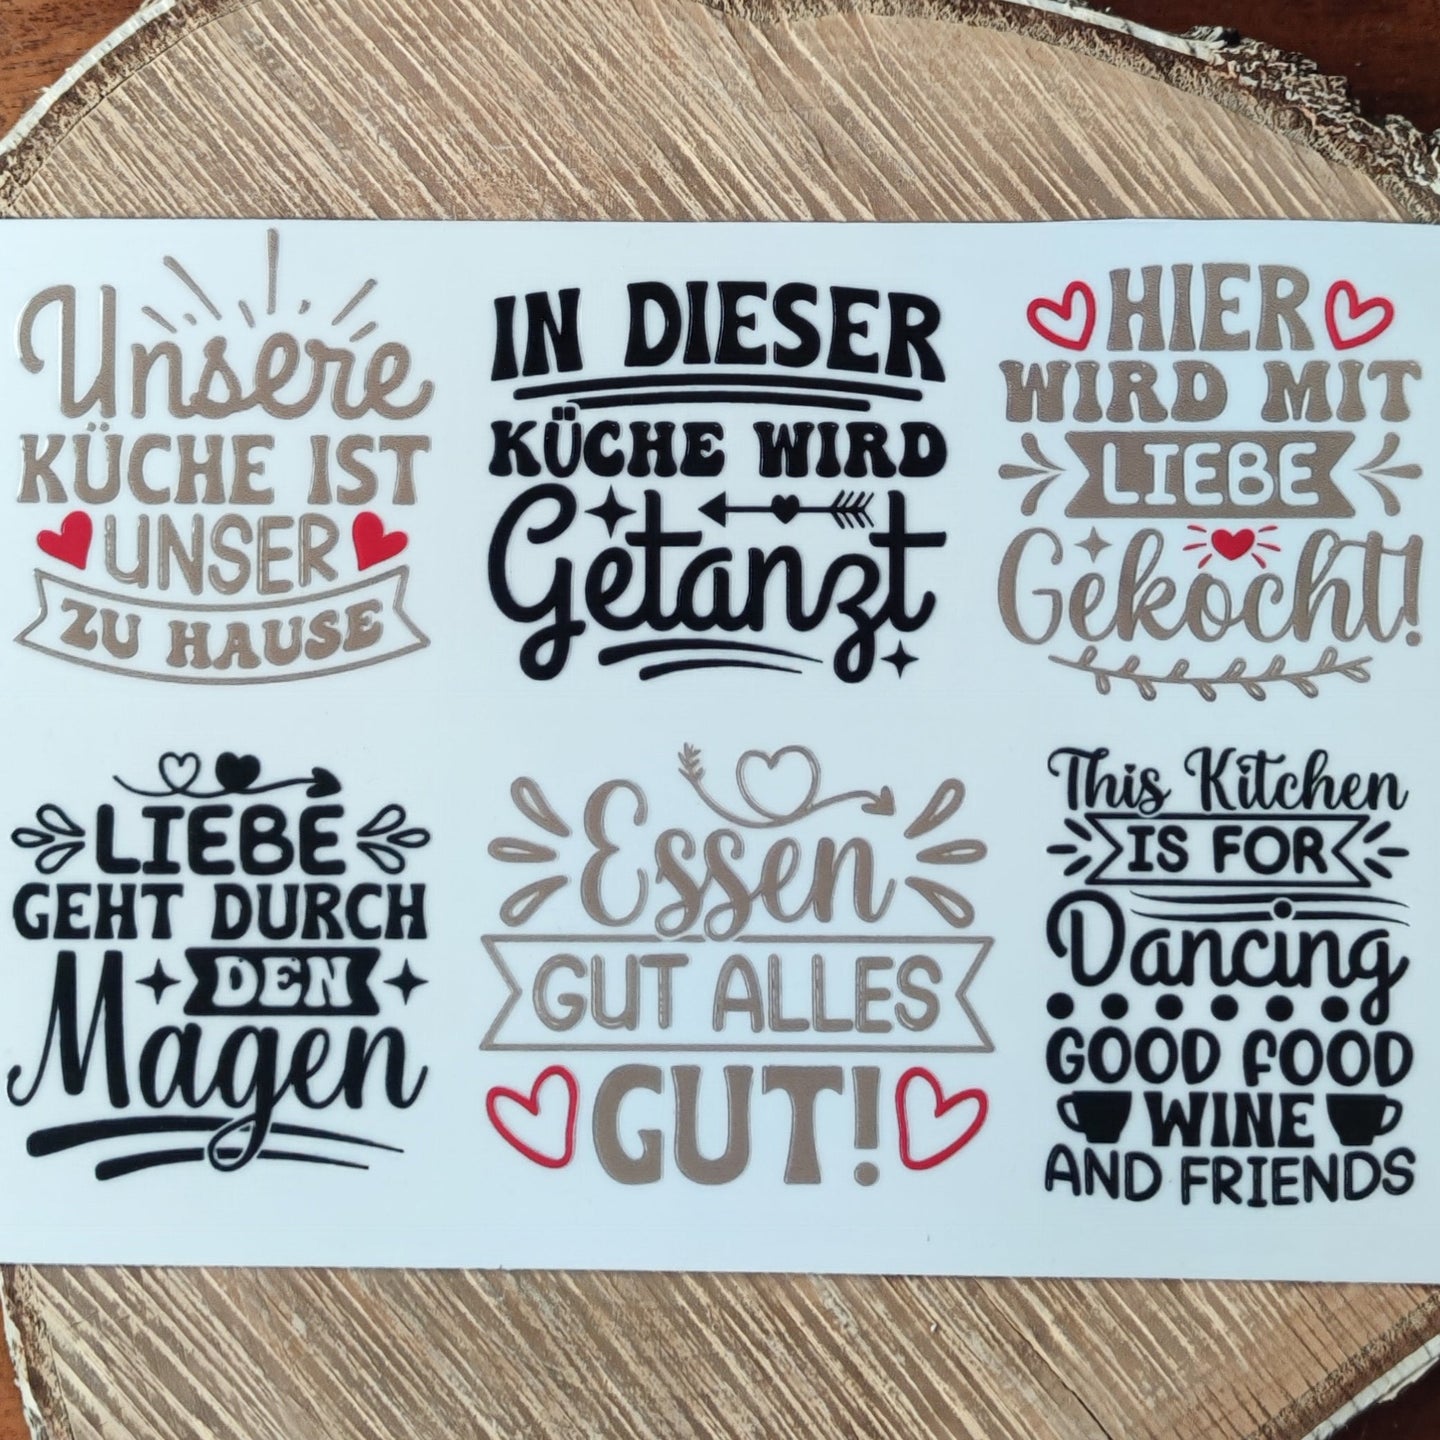 Unsere
KÜCHE IST
UNSER
ZU HAUSE
IN DIESER
KÜCHE WIRD
Getanzt
HIER
WIRD MIT
LIEBE
Gekocht!
LIEBE
GEHT DURCH
DEN
Magen
Essen
GUT ALLES
GUT!
This Kitchen
IS FOR
Dancing
GOOD FOOD
WINE
AND FRIENDS